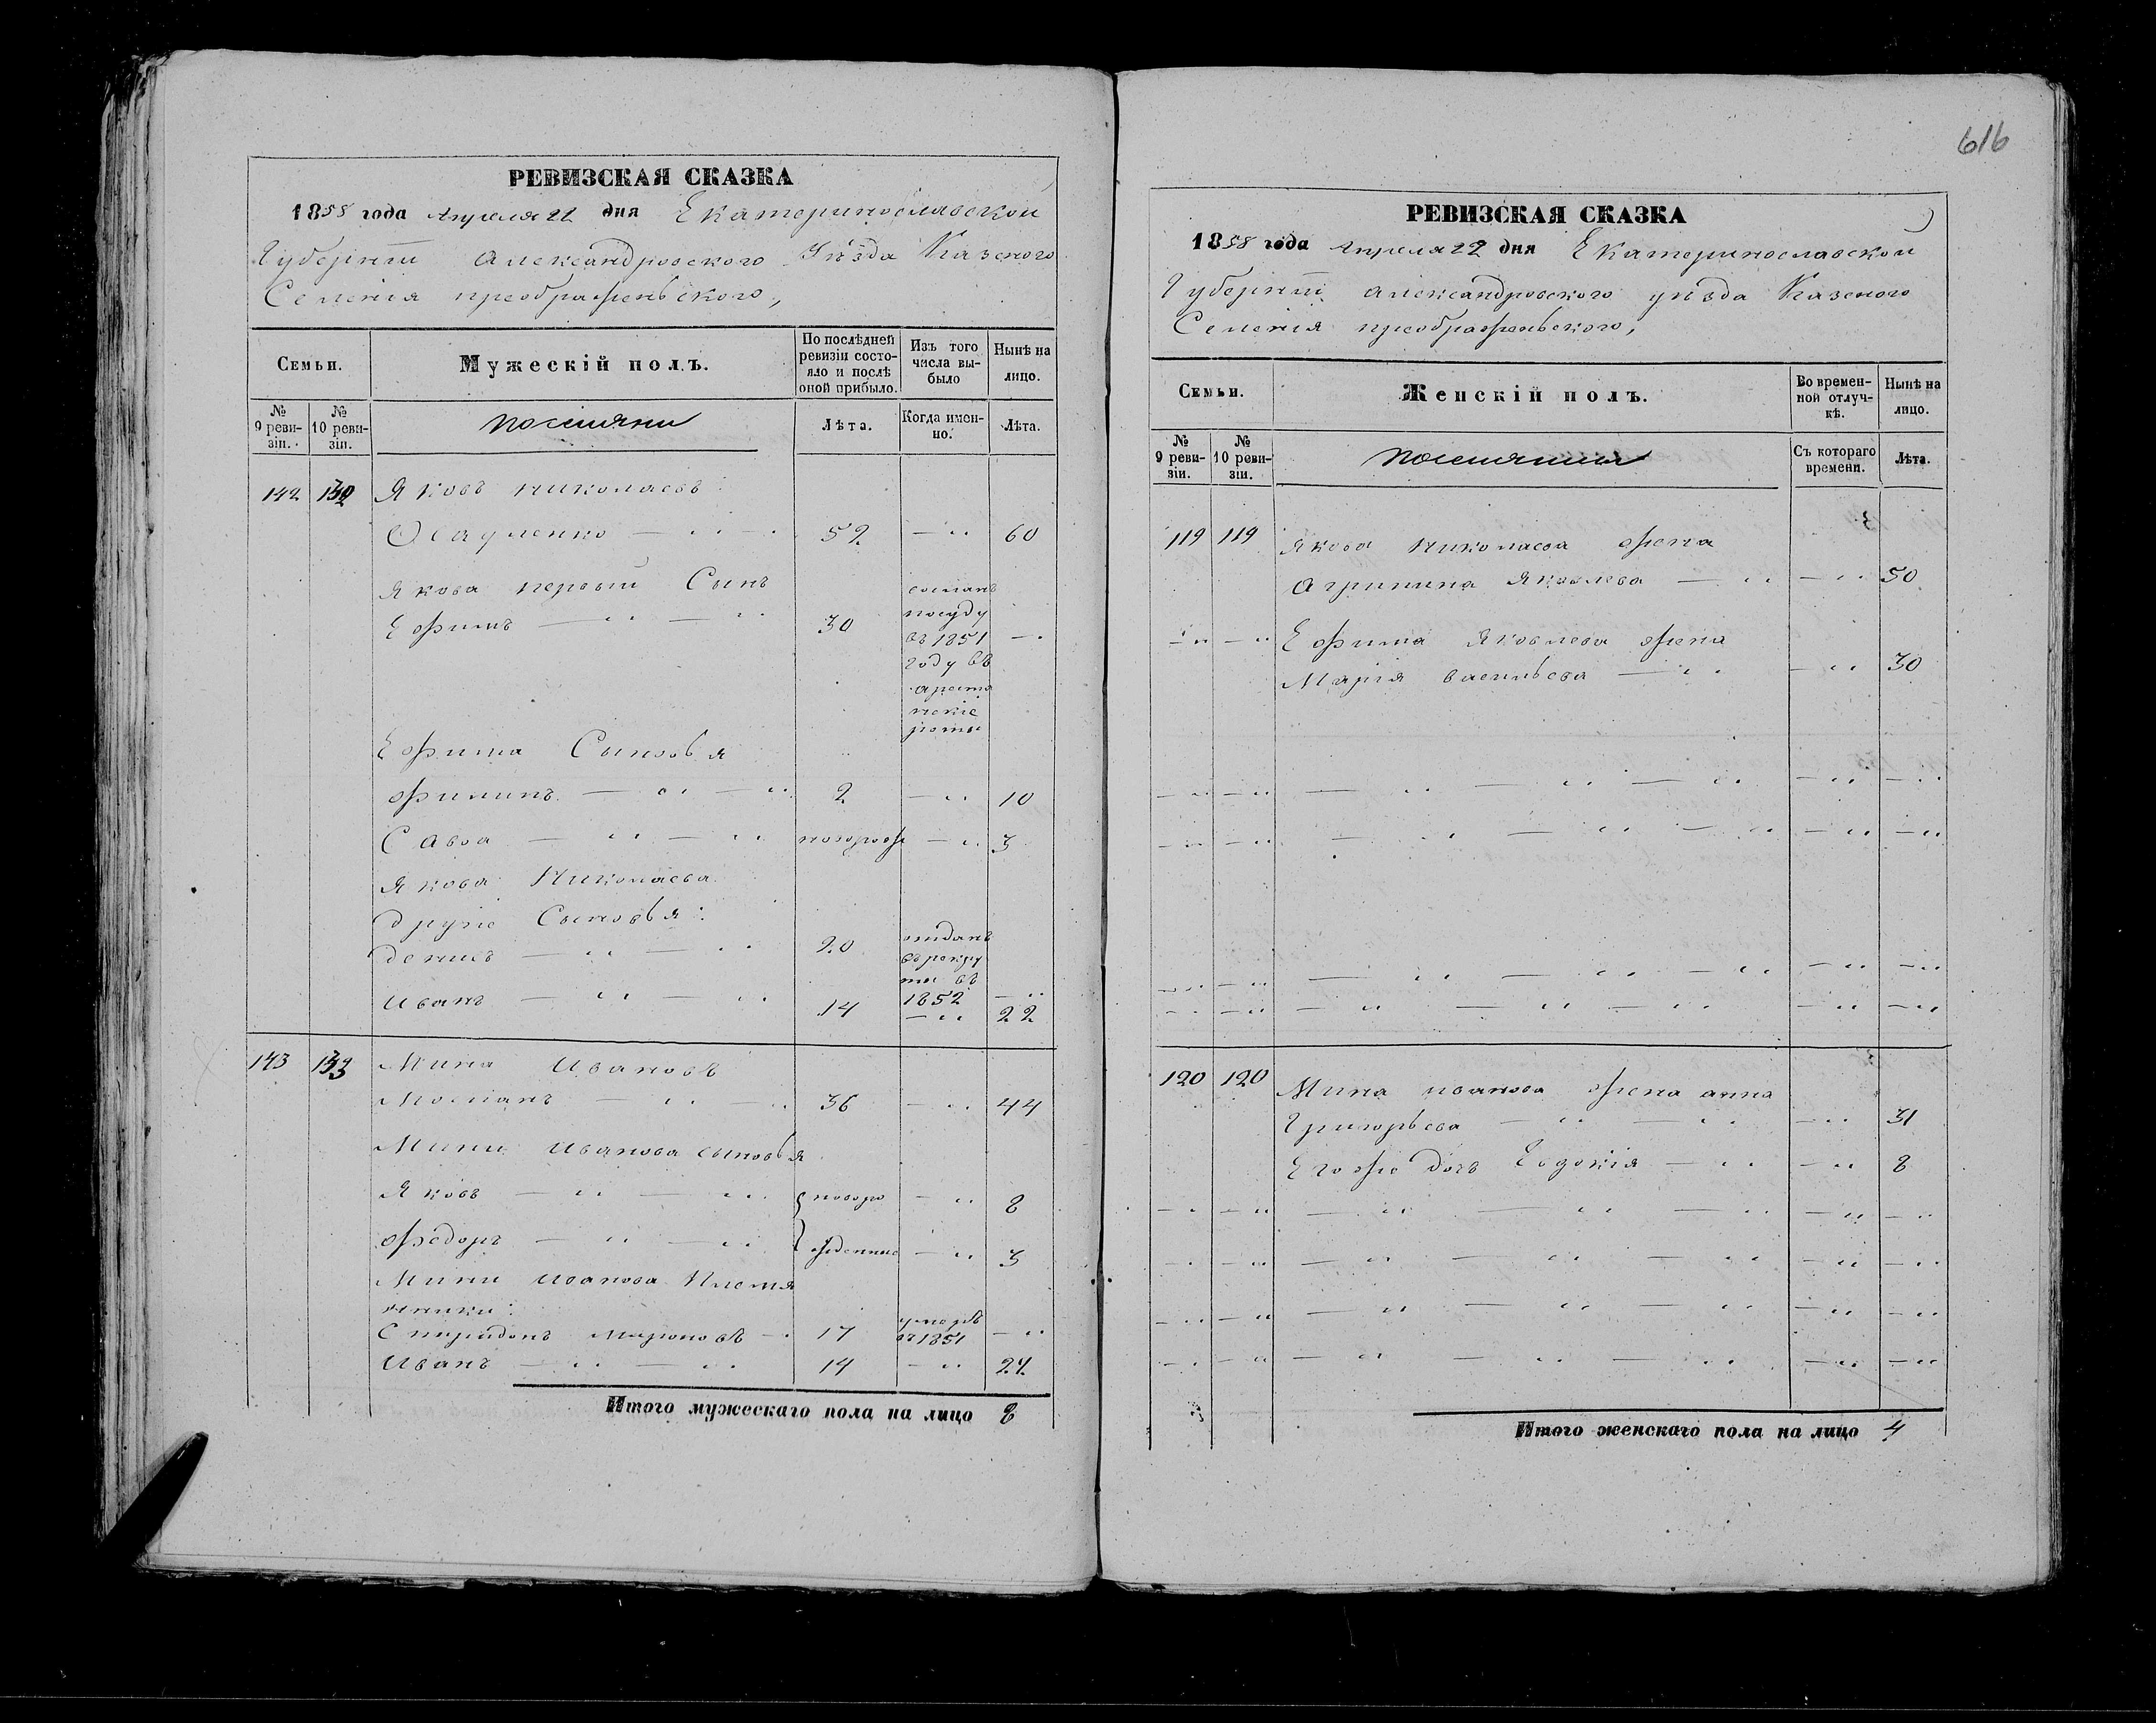 РЕВИЗСКАЯ СКАЗКА
1858 года Апреля 22 дня Екатеринославской
Губерніи Александровского Уѣзда Казеного
Селенія преображеньского,
Семьи.
Мужескій полъ.
По послѣдней ревизіи состояло и послѣ оной прибыло.
Изъ того числа выбыло
Нынѣ на лицо.
№ 9 ревизіи.
№ 10 ревизіи.
поселяни
Лѣта.
Когда именно.
Лѣта.
142 Яковъ николаевъ
Осауленко — " — 52 — " 60
Якова первый Сынъ
Ефимъ — " — " 30 сосланъ посуду въ 1851 году въ арестанские роты — "
Ефима Сыновья
Филипъ — " — " 2 — " 10
Савва — " — " новорож — " 3
Якова Николаева
другие Сыновья:
денисъ — " — " 20 отданъ въ рекруты въ 1852 — "
Иванъ — " — " 14 — " 22
143 133 Мина Ивановъ
— " — " 36 — " 44
Мины Иванова сыновья
Яковъ — " — " новоро — " 8
Федоръ — " — " жденные — " 3
Мины Иванова Племя
нники:
Спиридонъ Мироновъ — " 17 умеръ въ 1851 — "
Иванъ — " — " 14 — " 24
Итого мужескаго пола на лицо 8
616
РЕВИЗСКАЯ СКАЗКА
1858 года Апреля 22 дня Екатеринославской
Губерніи Александровского уѣзда Казеного
Селенія преображеньского,
Семьи.
Женскій полъ.
Во временной отлучкѣ.
Нынѣ на лицо.
№ 9 ревизіи.
№ 10 ревизіи.
Съ котораго времени.
Лѣта.
119 119 Якова Николаева жена
Агрипина Яковлева — " — " 50
— " — " Ефима Яковлева жена
Марія васильева — " — " 30
120 120 Мина иванова жена анна
Григорьева — " — " — " 31
Егоже дочь Евдокія — " — " 8
Итого женскаго пола на лицо 4